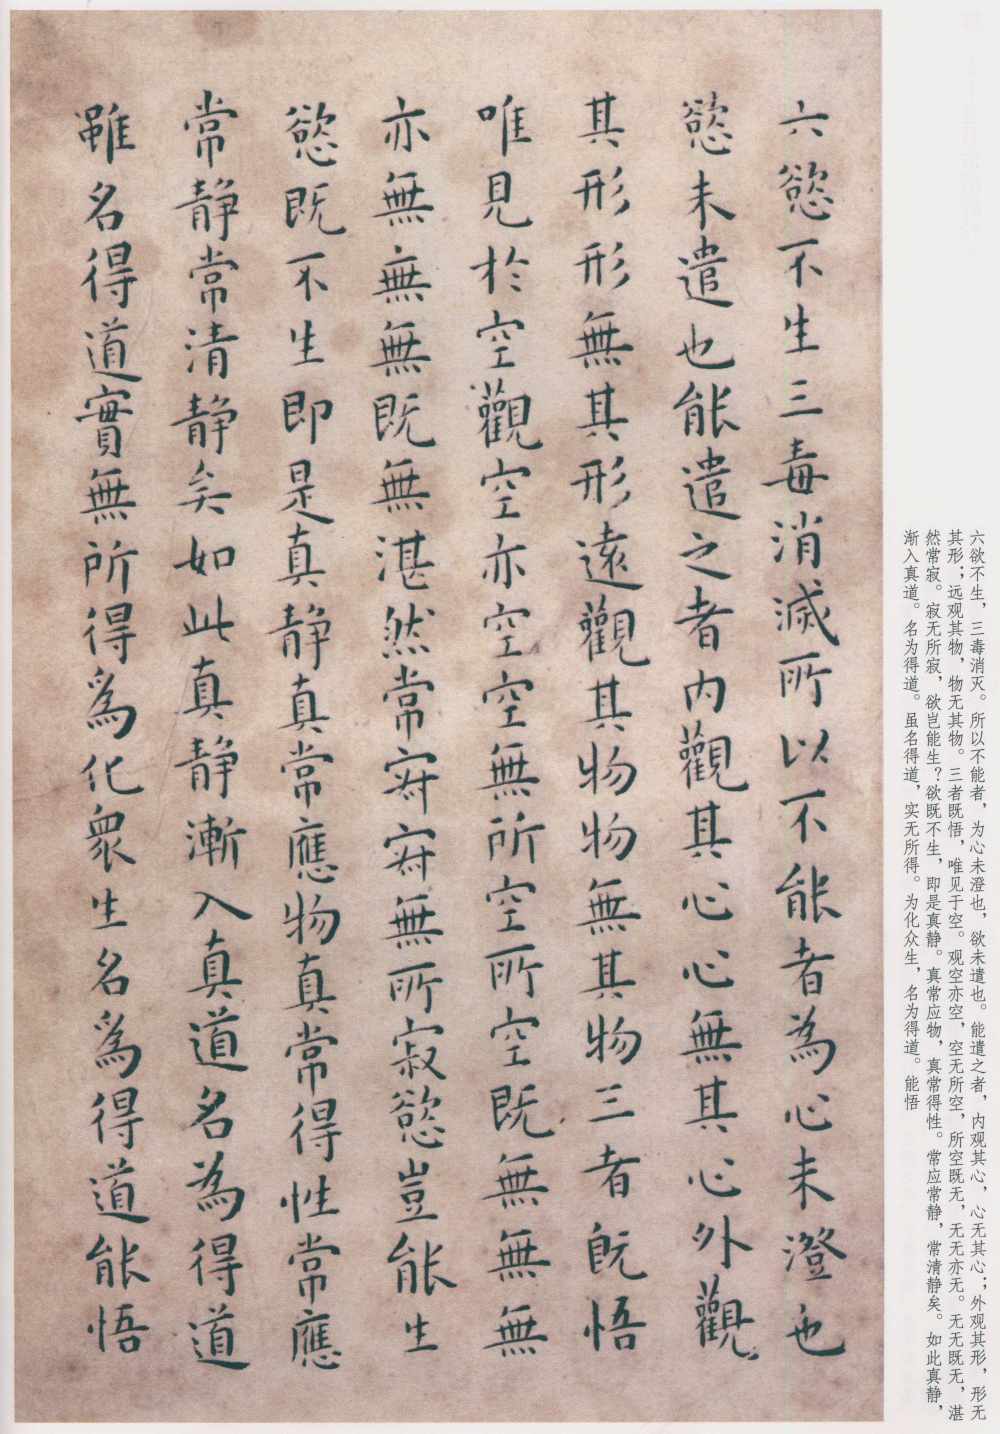 六慾不生三毒消滅所以不能者為心未澄也
慾未遣也能遣之者内觀其心心無其心外觀
其形形無其形遠觀其物物無其物三者既悟
唯見於空觀空亦空空無所空所空既無無無
亦無無無既無湛然常寂寂無所寂慾豈能生
慾既不生即是真静真常應物真常得性常應
常静常清静矣如此真静漸入真道名為得道
雖名得道實無所得爲化衆生名爲得道能悟
六欲不生，三毒消灭。所以不能者，为心未澄也，欲未遣也。能遣之者，内观其心，心无其心；外观其形，形无
其形；远观其物，物无其物。三者既悟，唯见于空。观空亦空，空无所空，所空既无，无无亦无。无无既无，湛
然常寂。寂无所寂，欲岂能生？欲既不生，即是真静。真常应物，真常得性。常应常静，常清静矣。如此真静，
渐入真道。名为得道。虽名得道，实无所得。为化众生，名为得道。能悟